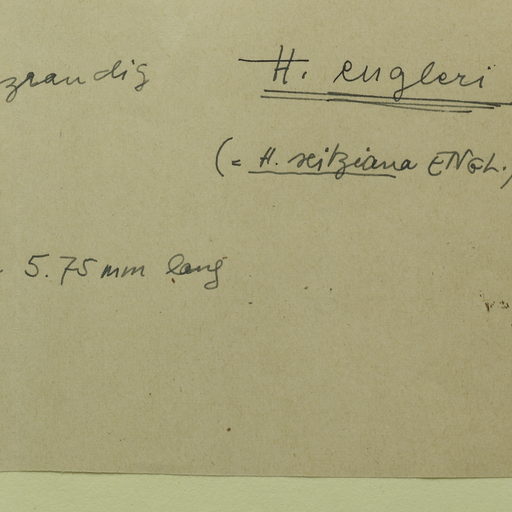 zrandig H. engleri
(= H. seitziana ENGL.)
5.75 mm lang